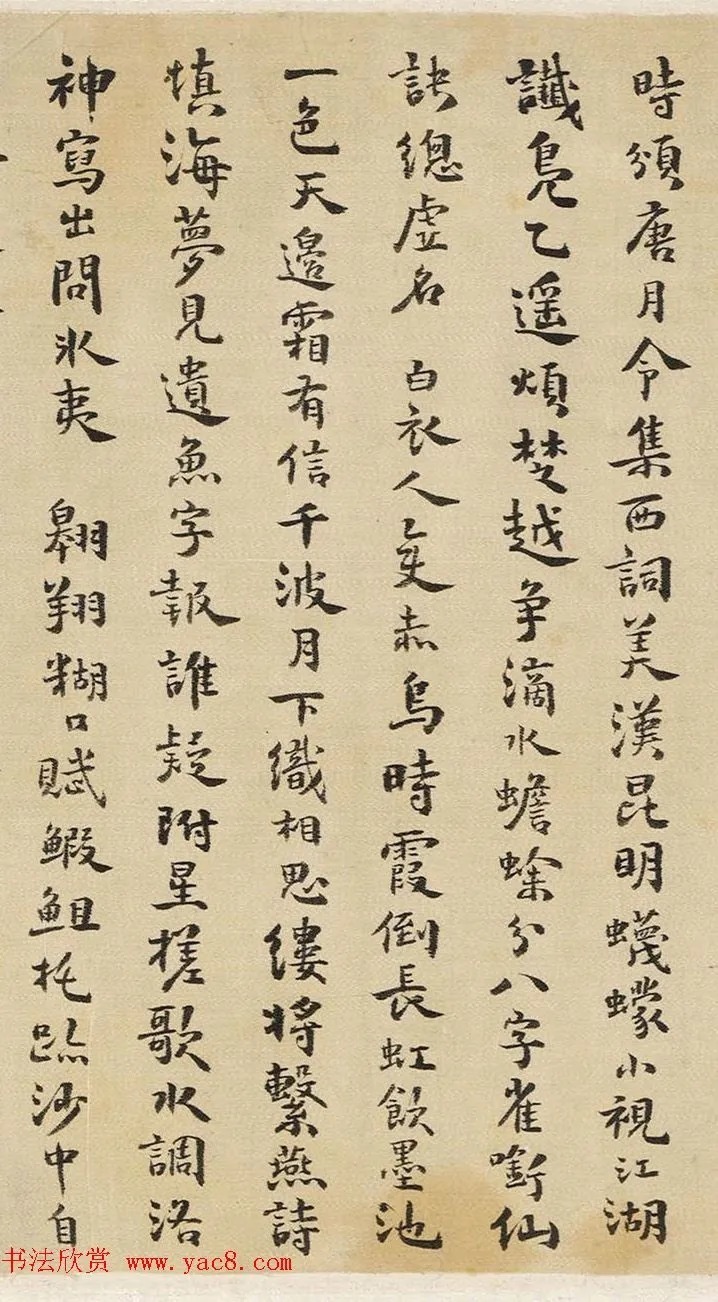 時頒唐月令集西詞美漢昆明蠛蠓小視江湖
讖鳧乙遥煩楚越爭滴水蟾蜍分八字雀銜仙
訣總虛名 白衣人變赤烏時霞倒長虹飲墨池
一色天邊霜有信千波月下織相思縷將繫燕詩
填海夢見遺魚字報誰疑附星槎歌水調洛
神寫出問冰夷 翱翔糊口賦鰕䱉托跡沙中自
书法欣赏 www.yac8.com